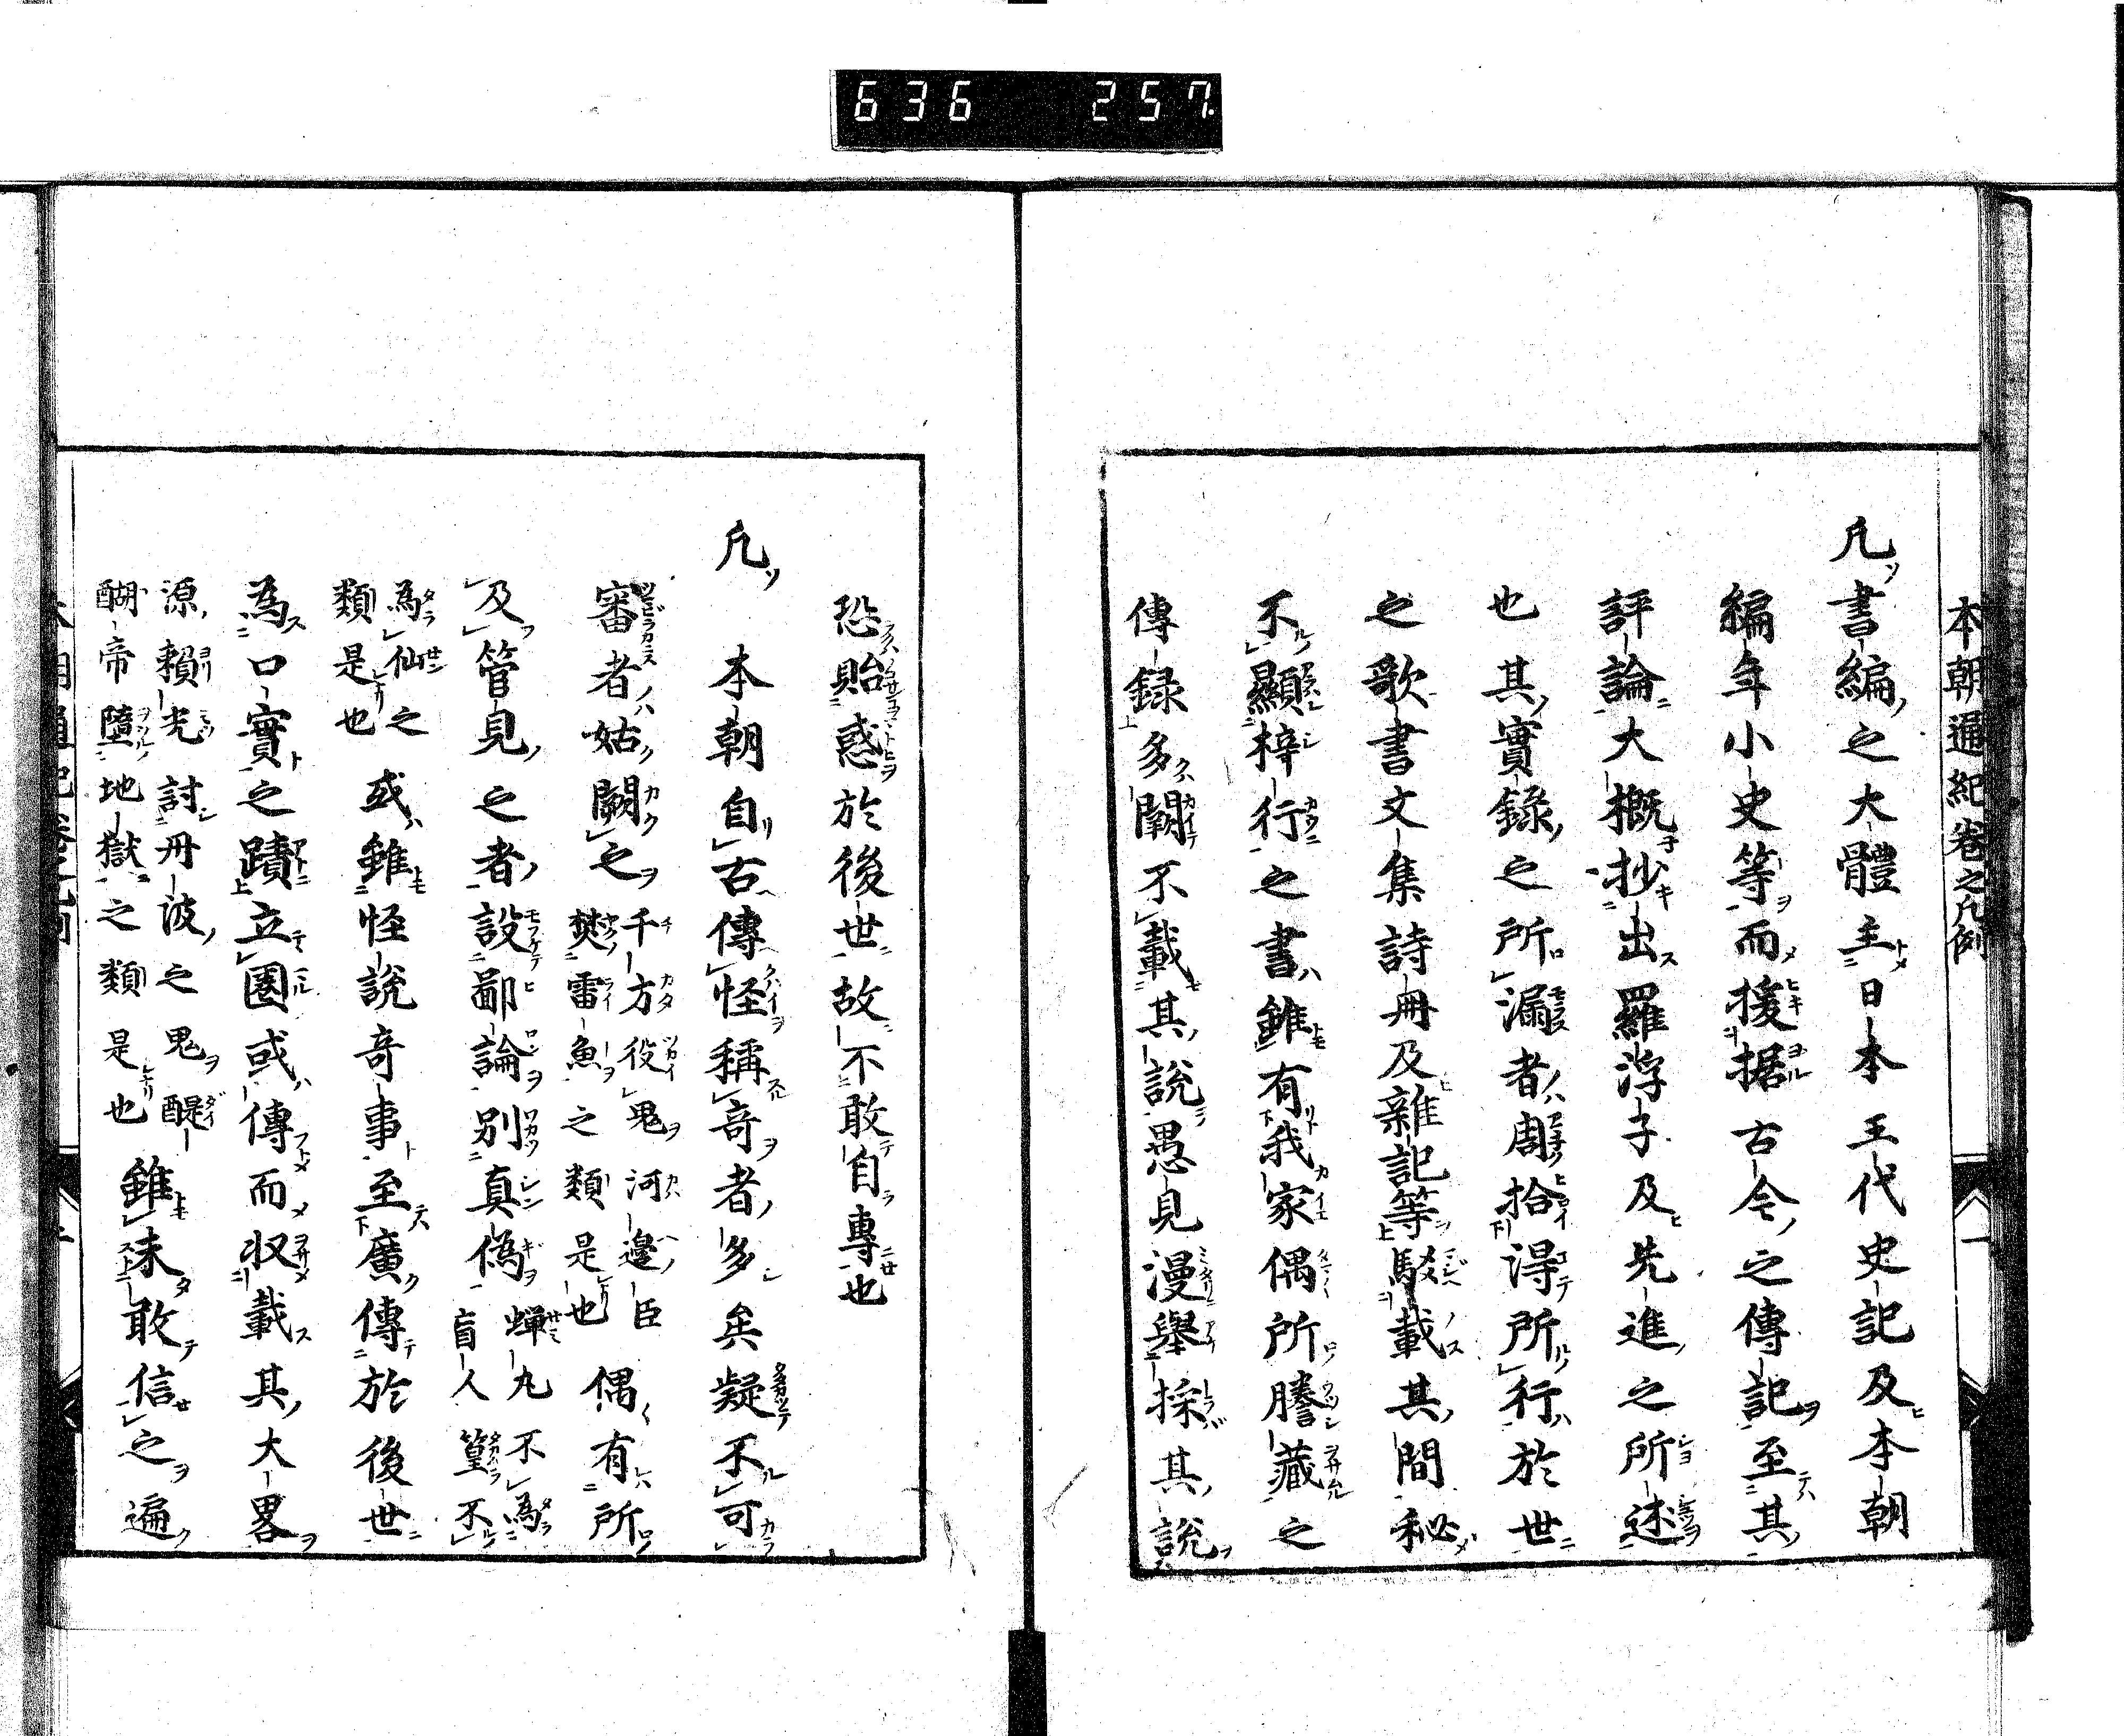 636 257
本朝通紀卷之凡例 一
凡書編之大體主日本王代史記及本朝
編年小史等而援据古今之傳記至其
評論大概抄出羅浮子及先進之所述
也其實錄之所漏者周拾得所行於世
之歌書文集詩冊及雜記等駁載其間秘
不顯梓行之書雖有我家偶所謄藏之
傳録多闕不載其說愚見漫舉採其說
恐貽惑於後世故不敢自專也
凡本朝自古傳怪稱奇者多矣疑不可
審者姑闕之千方役鬼河邊臣
樊雷魚之類是也偶有所
及管見之者設鄙論別真偽蟬丸不為
盲人篁不
為仙之
類是也或雖怪說奇事至廣傳於後世
為口實之蹟立圂或傳而収載其大畧
源頼光討丹波之鬼醍
醐帝墮地獄之類是也雖未敢信之遍